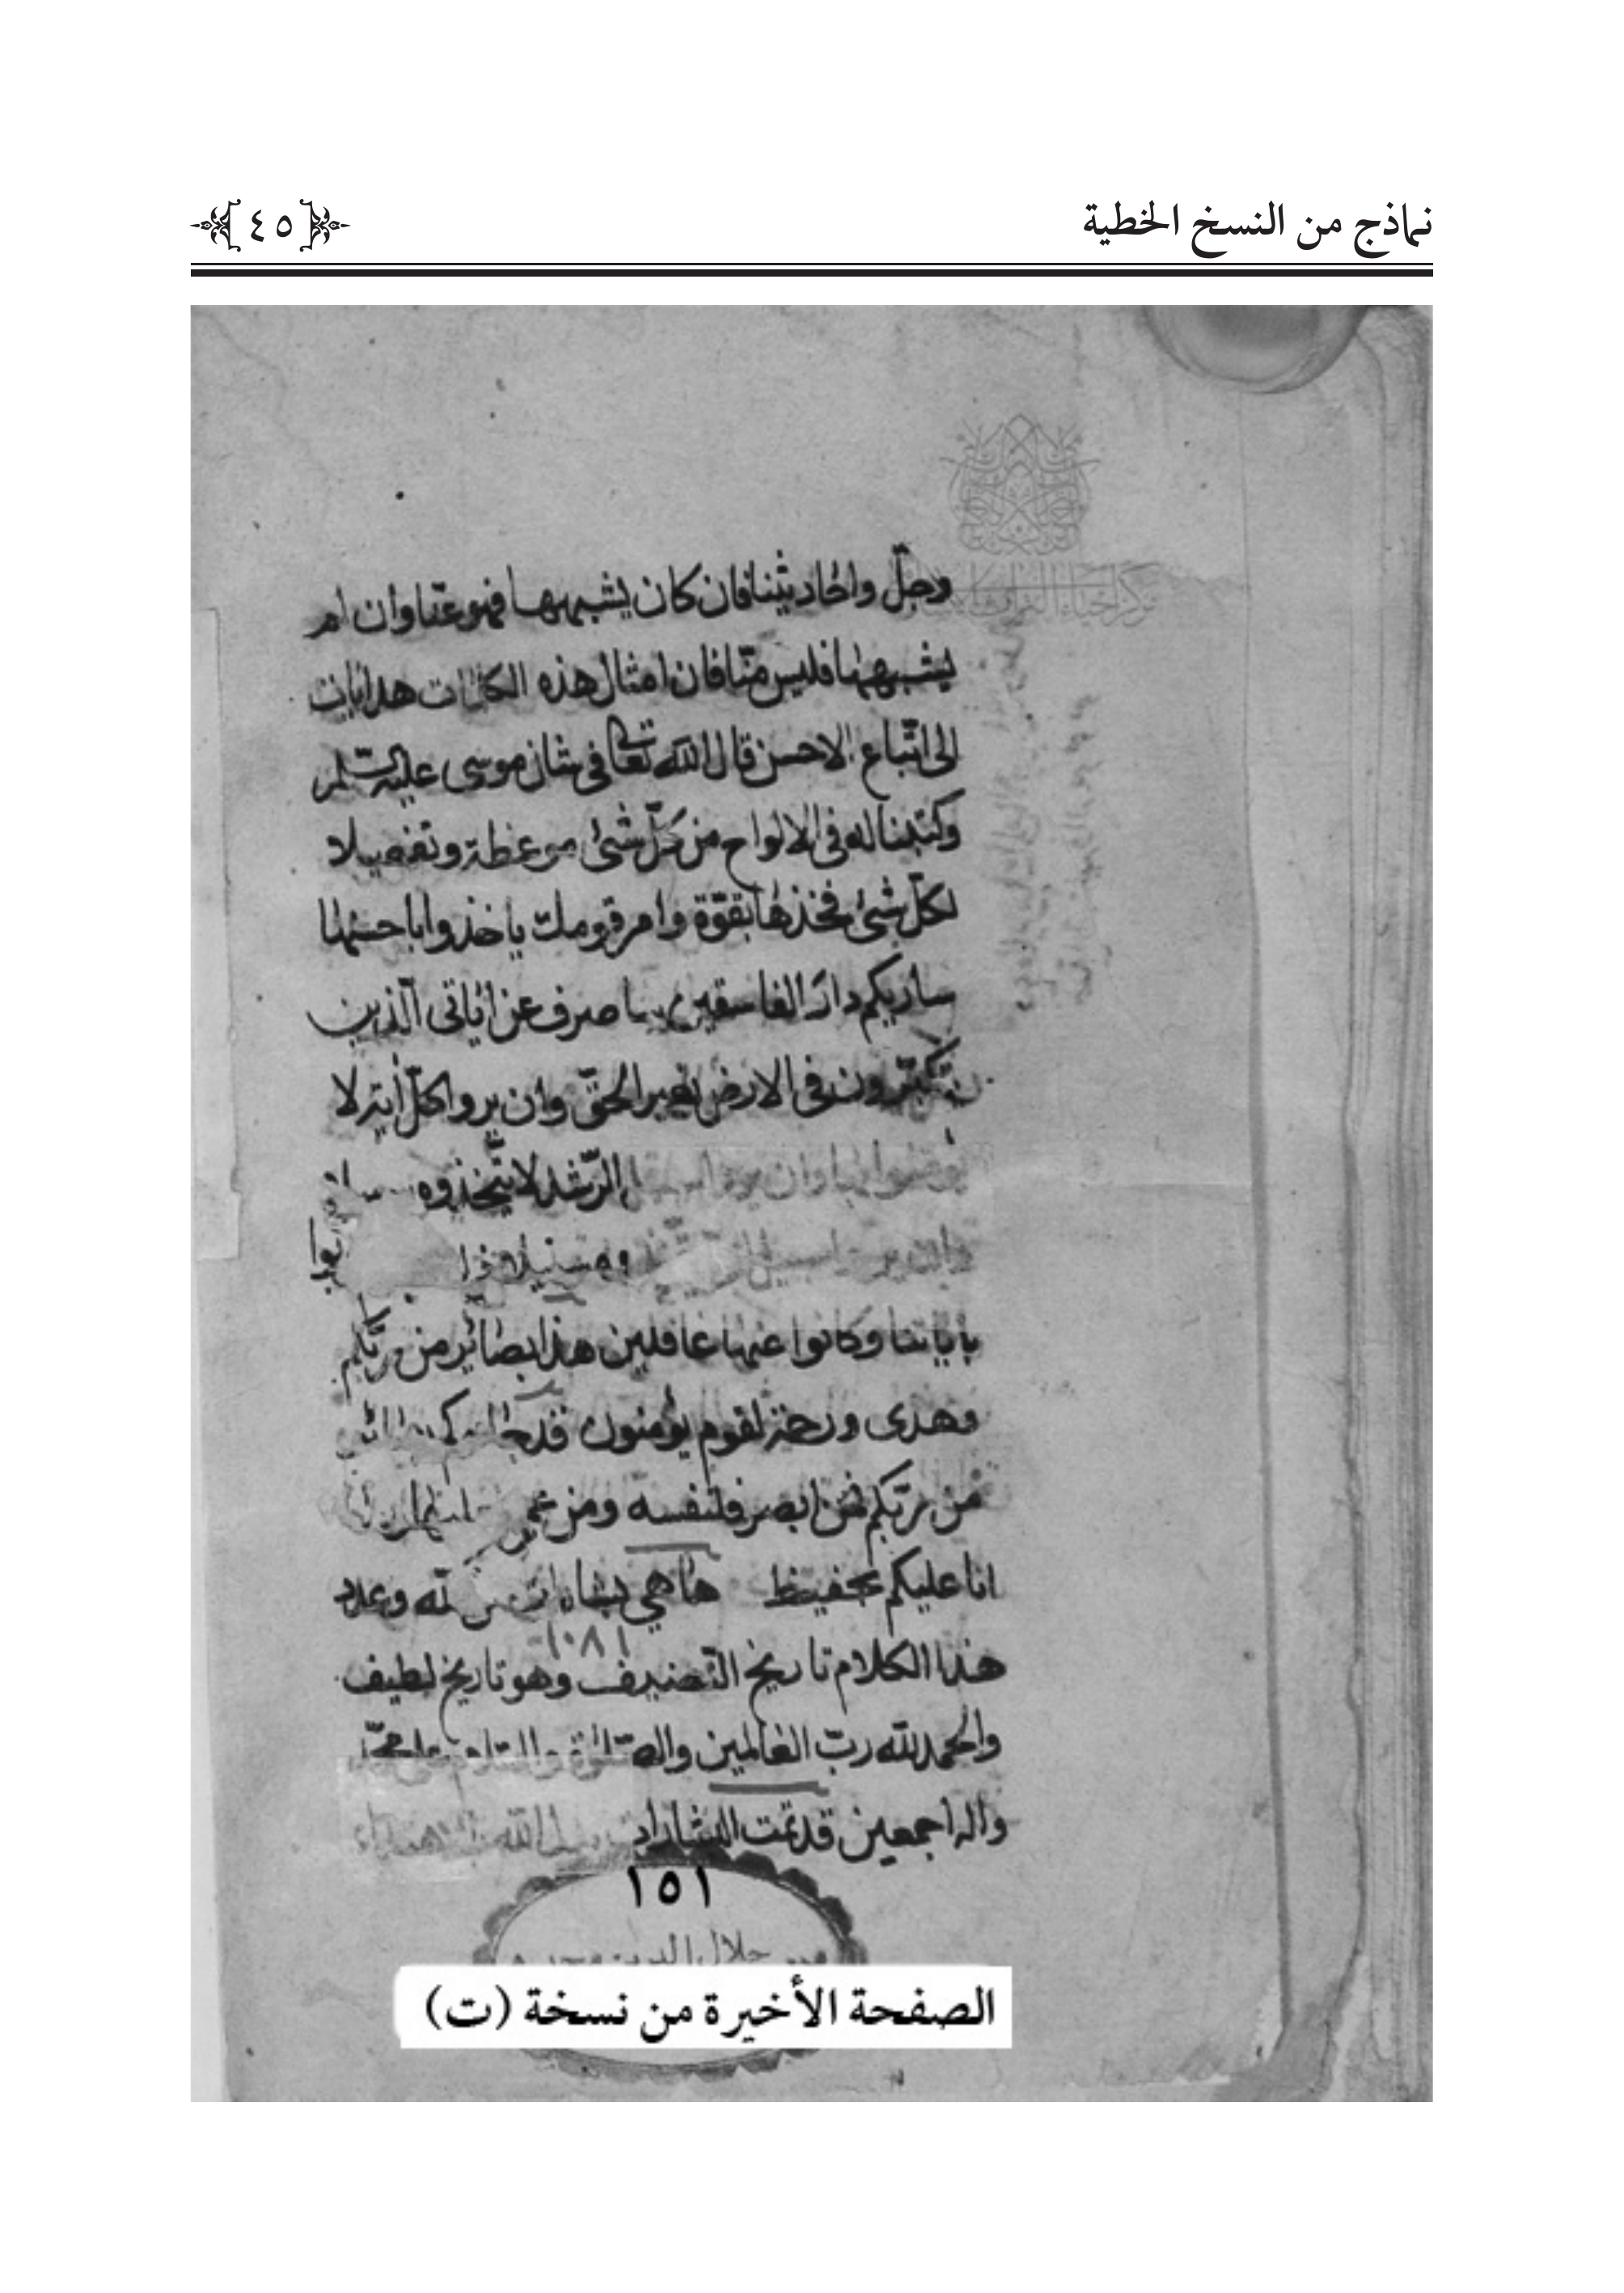 نماذج من النسخ الخطية
٤٥
وجلّ واحاديثنا فان كان يشبهها فهو عنّا وان لم
يشبهها فليس منّا فان امثال هذه الكلمات هدايات
الى اتّباع الاحسن قال الله تعالى فى شان موسى عليه السلم
وكتبنا له فى الالواح من كلّ شئ موعظة وتفصيلا
لكلّ شئ فخذها بقوّة وامر قومك ياخذوا باحسنها
ساريكم دار الفاسقين ساصرف عن اياتى الّذين
يتكبّرون فى الارض بغير الحقّ وان يروا كلّ اية لا
يؤمنوا بها وان يروا سبيل الرّشد لا يتّخذوه
سبيل
باياتنا وكانوا عنها غافلين هذا بصائر من ربّكم
وهدى ورحمة لقوم يؤمنون قد
من ربّكم فمن ابصر فلنفسه ومن عمى
انا عليكم بحفيظ ها هي وعدد
١٠٨١
هذا الكلام تاريخ التّصنيف وهو تاريخ لطيف
والحمد لله ربّ العالمين والصّلوة والسّلام على محمّد
واله اجمعين قد تمّت
١٥١
جلال الدين
الصفحة الأخيرة من نسخة (ت)